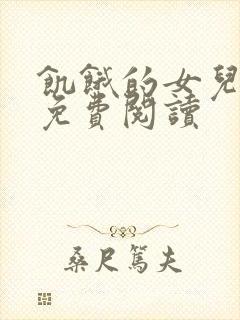 飢餓的女兒
免費閱讀
桑尺篤夫